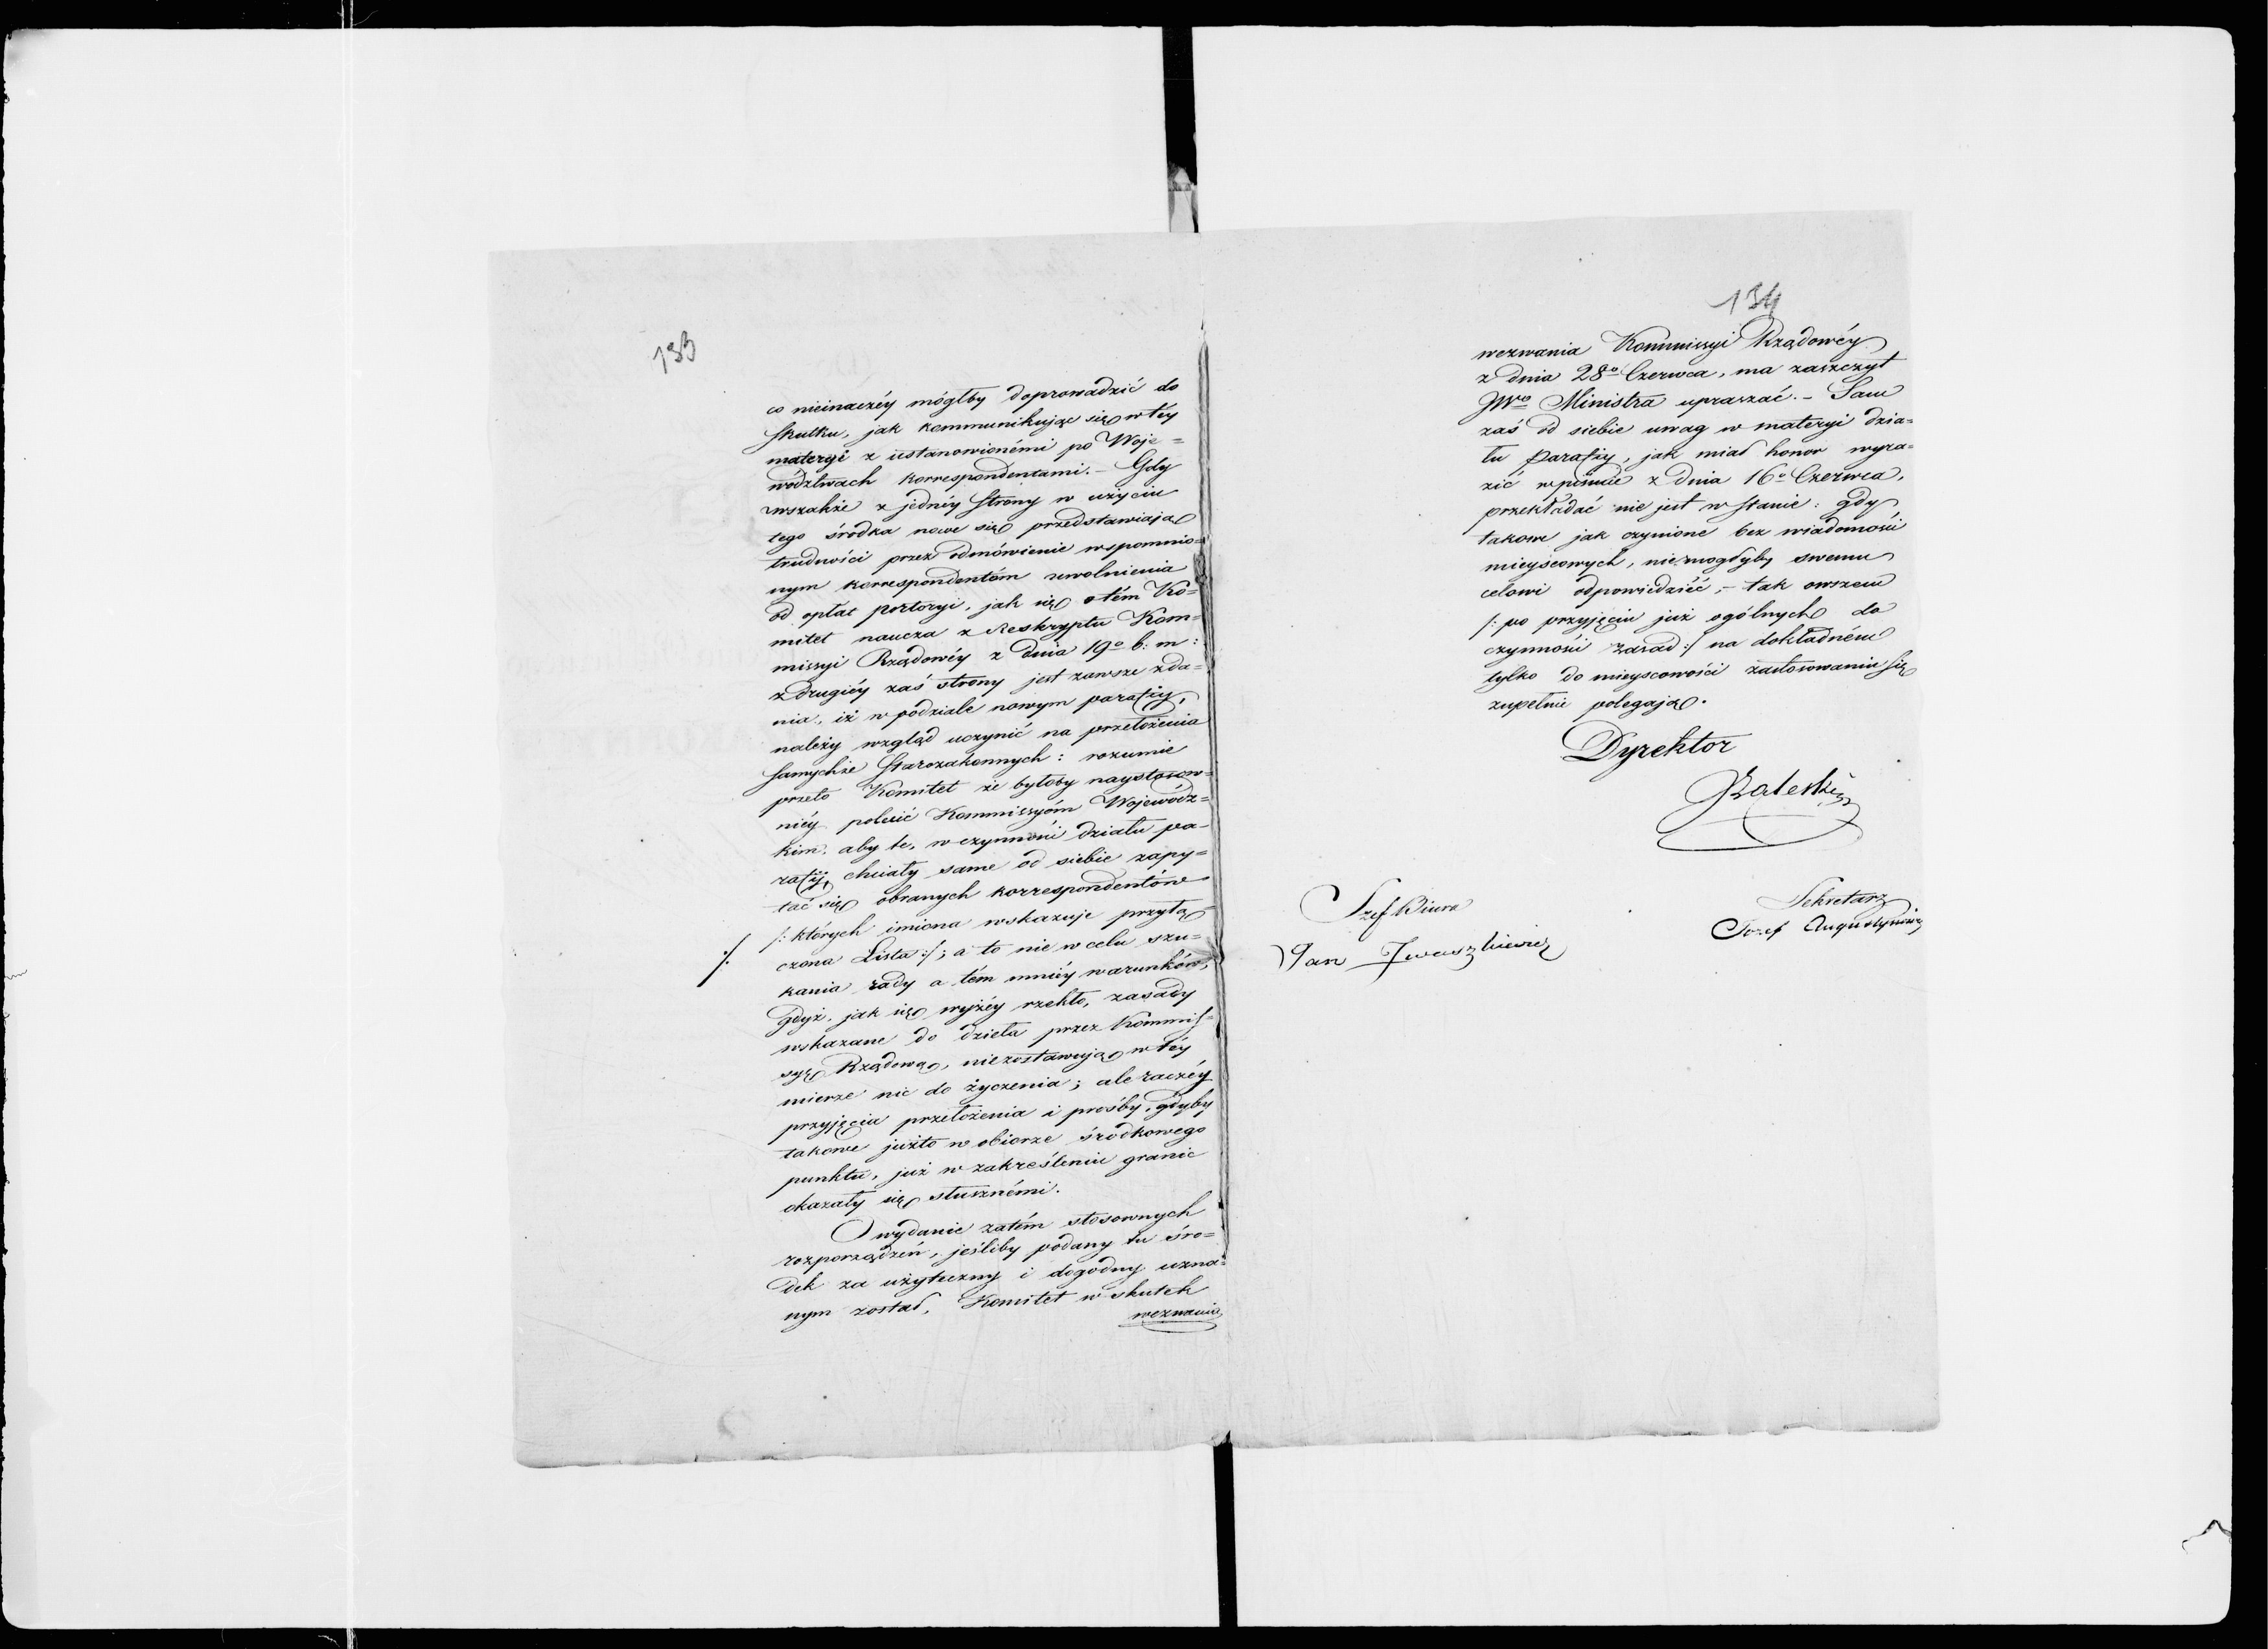 133
co nieinaczéy mógłby doprowadzić do
skutku, jak kommunikując się w téy
materyi z ustanowionémi po Woje=
wództwach korrespondentami. – Gdy
wszakże z jednéy strony w użyciu
tego środka nowe się przedstawiają
trudności przez odmówienie wspomnio=
nym korrespondentóm uwolnienia
od opłat portoryi, jak się o tém Ko=
mitet naucza z Reskryptu Kom=
missyi Rządowéy z dnia 19º b: m:
z drugiéy zaś strony jest zawsze zda=
nia, iż w podziale nowym parafiy,
należy wzgląd uczynić na przełożenia
samychże Starozakonnych: rozumie
przeto Komitet że byłoby naystosow=
niéy polecić Kommissyóm Wojewódz=
kim, aby te, w czynności działu pa=
rafiy, chciały same od siebie zapy=
tać się obranych korrespondentów
/: których imiona wskazuje przyłą=
czona Lista :/; a to nie w celu szu=
kania rady a tém mniéy warunków,
gdyż, jak się wyżéy rzekło, zasady
wskazane do dzieła przez Kommis=
syę Rządową, niezostawują w téy
mierze nic do życzenia; ale raczéy
przyjęcia przełożenia i prośby, gdyby
takowe jużto w obiorze środkowego
punktu, już w zakreśleniu granic
okazały się słusznémi.
O wydanie zatém stosownych
rozporządzeń, jeśliby podany tu śro=
dek za użyteczny i dogodny uzna=
nym został, Komitet w skutek
wezwania
134
wezwania Kommissyi Rządowéy
z dnia 28º Czerwca, ma zaszczyt
JWº Ministra upraszać. – Sam
zaś od siebie uwag w materyi dzia=
łu parafiy, jak miał honor wyra=
zić w piśmie z dnia 16º Czerwca,
przekładać nie jest w stanie: gdy
takowe jak czynione bez wiadomości
mieyscowych, niemogłyby swemu
celowi odpowiedziéć, – tak owszem
/: po przyjęciu już ogólnych do
czynności zasad :/ na dokładném
tylko do mieyscowości zastosowaniu się
zupełnie polegają.
Dyrektor
Sekretarz
Jozef Augustynowicz
Szef Biura
Jan Iwaszkiewicz